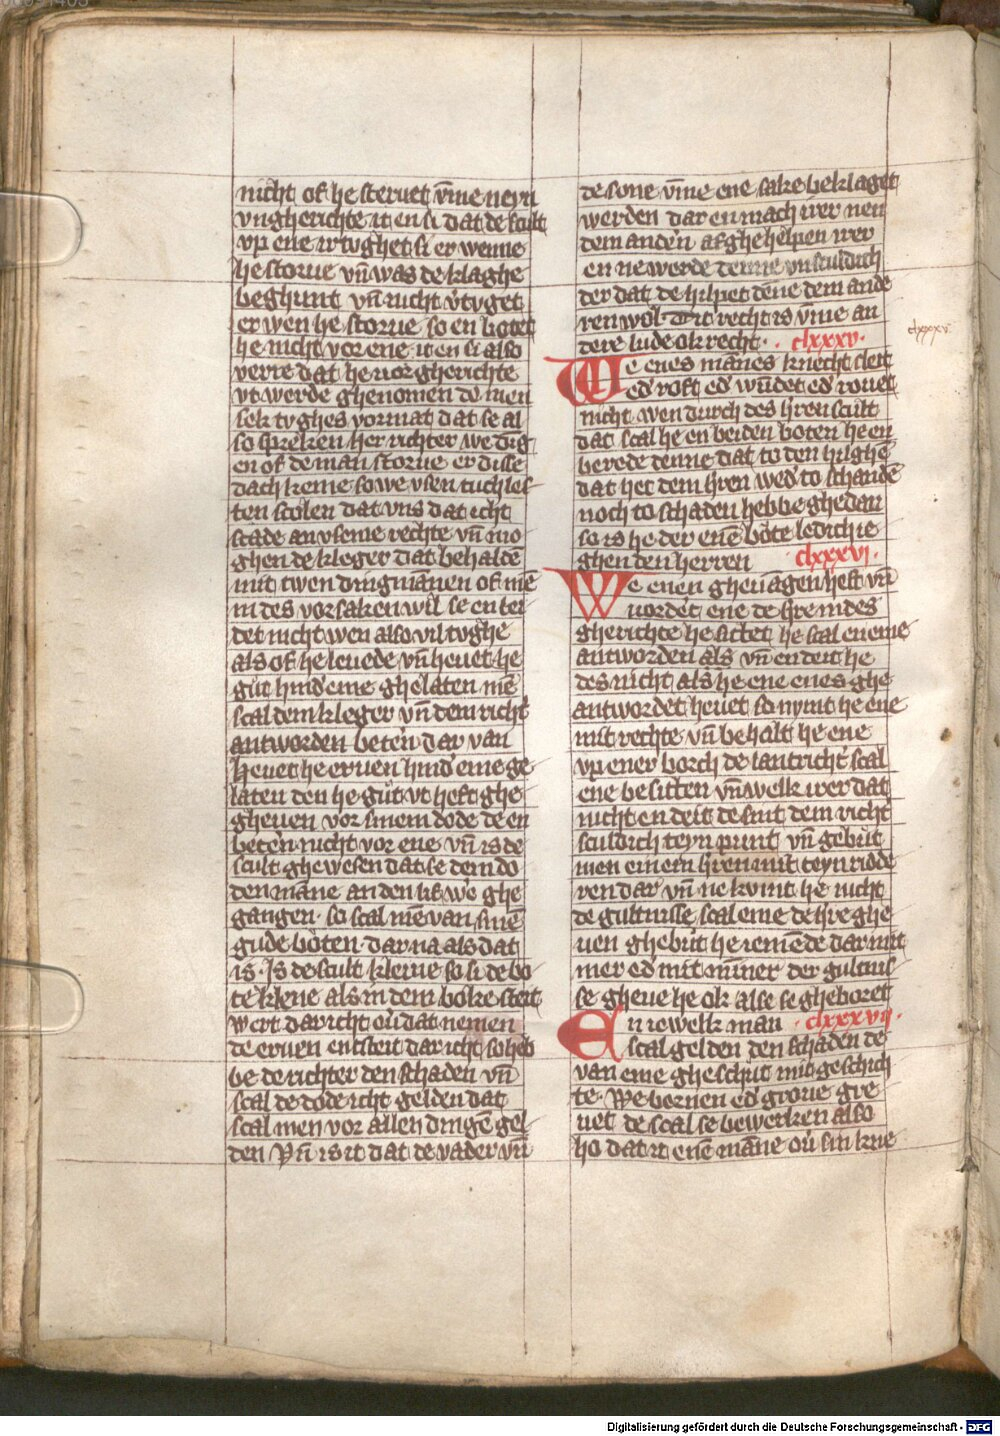 nicht of he steruet vm̄e neyn
vngherichte it en si dat de scult
vp ene ir tughet si er wenne
he storue vn̄ was de klaghe
beghunt vn̄ nicht v̓tuget
er wen he storue so en botet
he nicht vor ene it en si also
verre dat he uor gherichte
vt werde ghenomen de kien
sek tughes vormat dat se al
so spreken her richter we dig
en of de man storue er disse
dach keme so we vsen tuch lei
ten scolen dat vns dat icht
scade an vseme rechte vn̄ mo
ghen de kleger dat behaldē
mit twen dingmānen of mē
in des vorsaken wil se en lei
det nicht wen also vil tughe
als of he leuede vn̄ heuet he
gůt hind̓ eme ghelaten mē
scal dem kleger vn̄ dem richt̓
antworden betern dar van
heuet he eruen hind̓ eme ge
laten den he gůt vt heft ghe
gheuen vor sinem dode de en
betern nicht vor ene vn̄ is de
scult ghewesen dat se dem do
den māne an den lif we ghe
gangen · so scal mē van sinē
gude bōten · dar na als dat
is · Is de scult kleine so si de bo
te kleine als in dem boke steit
wert dar icht ou̓ dat nemen
de eruen entsteit dar icht so heb
be de richter den schaden vn̄
scal de dode icht gelden dat
scal men vor allen dingē gel
den Vn̄ is it dat de vader vn̄
de sone vm̄e ene sake beklaget
werden dar en mach irer nen
dem andern af ghehelpen irer
en ne werde denne vnsculdich
der dat de hilpet dēne dem ande
ren wol Dit recht is vm̄e an
dere lude ok recht · . clxxxv ·
clxxxv
We enes mānes knecht sleit
ed̓ roft ed̓ wūdet ed̓ rouet
nicht wen durch des h̓ren scult
dat scal he en beiden boten he en
berede denne dat to den hilghē
dat het dem h̓ren wed̓ to schande
noch to schaden hebbe ghedan
so is he der enē bōte ledich ie
ghen den herren clxxxvi ·
We enen gheuāgen heft vn̄
uordet ene de h̓re in des
gherichte he sittet he scal en eme
antworden als vn̄ en deit he
des nicht als he ene enes ghe
antwordet heuet so nymt he ene
mit rechte vn̄ behalt he ene
vp ener borch de lantricht̓ scal
ene besitten vn̄ welk irer dat
nicht en deit de sint dem richt̓
sculdich teyn punt vn̄ gebůt
men einem h̓ren mit teyn ridde
ren dar vn̄ ne kumt he nicht
de gultnisse scal eme de h̓re ghe
uen ghebůt he iemēde dar mit
mer ed̓ mit mīner der gultnis
se gheue he ok alse se gheboret
En iewelk man · clxxxvii ·
scal gelden den schaden de
van eme gheschůt mit geschich
te · We bornen ed̓ groue gre
uet de scal se bewerken also
ho dat it enē māne ou̓ sin knie
Digitalisierung gefördert durch die Deutsche Forschungsgemeinschaft - DFG